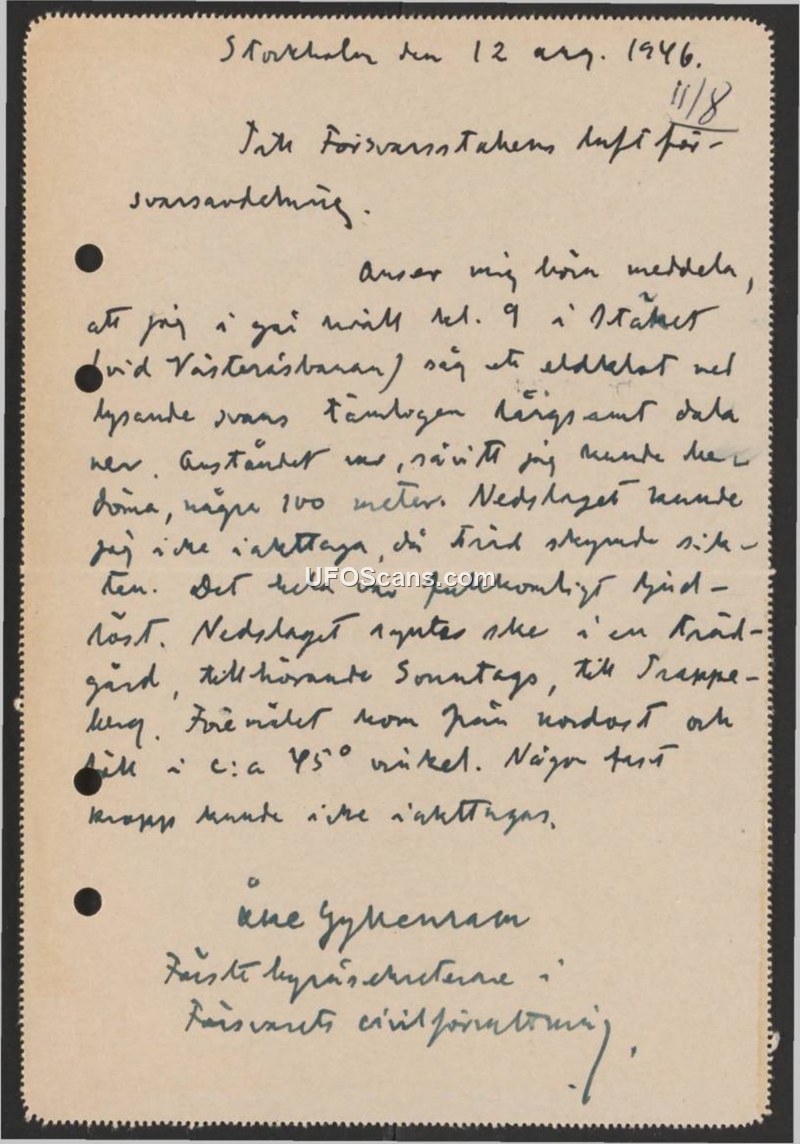 Stockholm den 12 aug. 1946.
11/8
Till Försvarsstabens luftför-
svarsavdelning.
Anser mig böra meddela,
att jag i går kväll kl. 9 i Stäket
(vid Västeråsbanan) såg ett eldklot med
lysande svans tämligen långsamt dala
ner. Avståndet var, såvitt jag kunde be-
döma, några 100 meter. Nedslaget kunde
jag icke iakttaga, då träd skymde sik-
ten. Det hela var fullkomligt ljud-
löst. Nedslaget syntes ske i en träd-
gård, tillhörande Sonntags, till Trappe-
berg. Föremålet kom från nordost och
föll i c:a 45° vinkel. Någon fast
kropp kunde icke iakttagas.
Åke Gyllenram
Förste byråsekreterare i
Försvarets civilförvaltning.
UFOScans.com